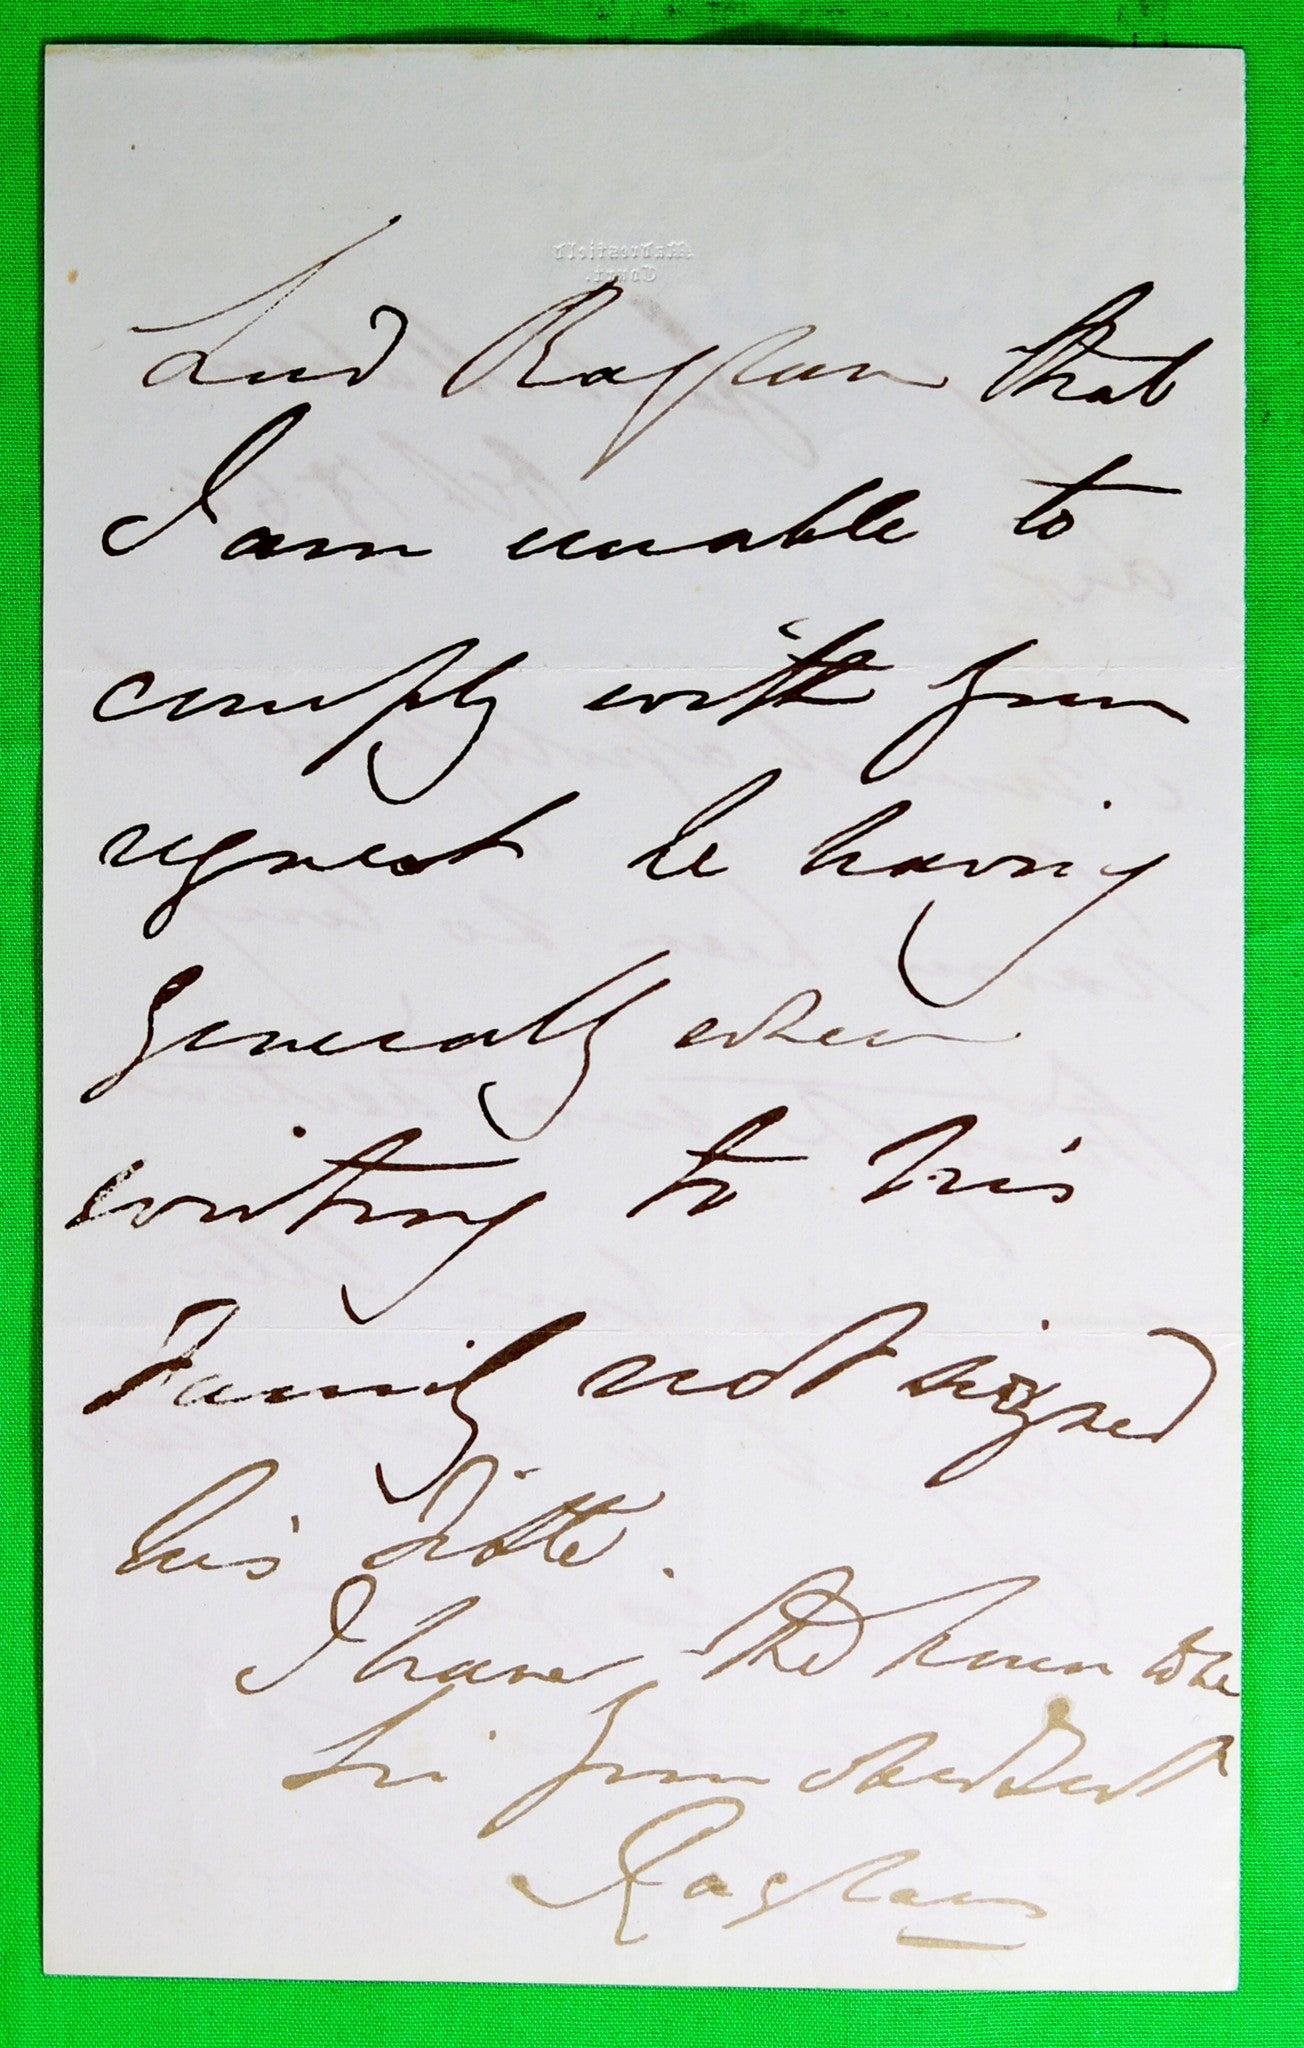 Lord Raglan that
I am unable to
comply with your
request he having
generally when
writing to his
Family not signed
his Title.
I have the honor to be
Sir Your obed Servt
Raglan